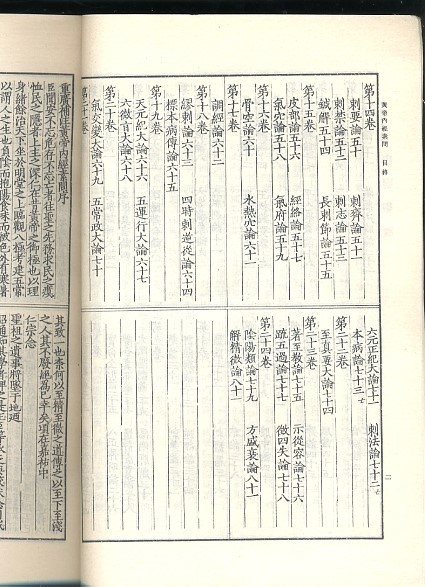 黃帝內經素問　目錄
第十四卷
刺要論五十　刺齊論五十一
刺禁論五十二　刺志論五十三
鍼解五十四　長刺節論五十五
第十五卷
皮部論五十六　經絡論五十七
氣穴論五十八　氣府論五十九
第十六卷
骨空論六十　水熱穴論六十一
第十七卷
調經論六十二
第十八卷
繆刺論六十三　四時刺逆從論六十四
標本病傳論六十五
第十九卷
天元紀大論六十六　五運行大論六十七
六微旨大論六十八
第二十卷
氣交變大論六十九　五常政大論七十
第二十一卷
六元正紀大論七十一　刺法論七十二亡
本病論七十三亡
第二十二卷
至真要大論七十四
第二十三卷
著至教論七十五　示從容論七十六
疏五過論七十七　徵四失論七十八
第二十四卷
陰陽類論七十九　方盛衰論八十
解精微論八十一
二
重廣補注黃帝內經素問序
臣聞安不忘危存不忘亡者往聖之先務求民之瘼
恤民之隱者上主之深仁在昔黃帝之御極也以理
身緒餘治天下坐於明堂之上臨觀八極考建五常
以謂人之生也負陰而抱陽食味而被色外有寒暑
其致一也奈何以至精至微之道傳之以至下至淺
之人其不廢絕為已幸矣頃在嘉祐中
仁宗念
聖祖之遺事將墜于地廼
詔通知其學者俾之是正臣等承乏典校伏念